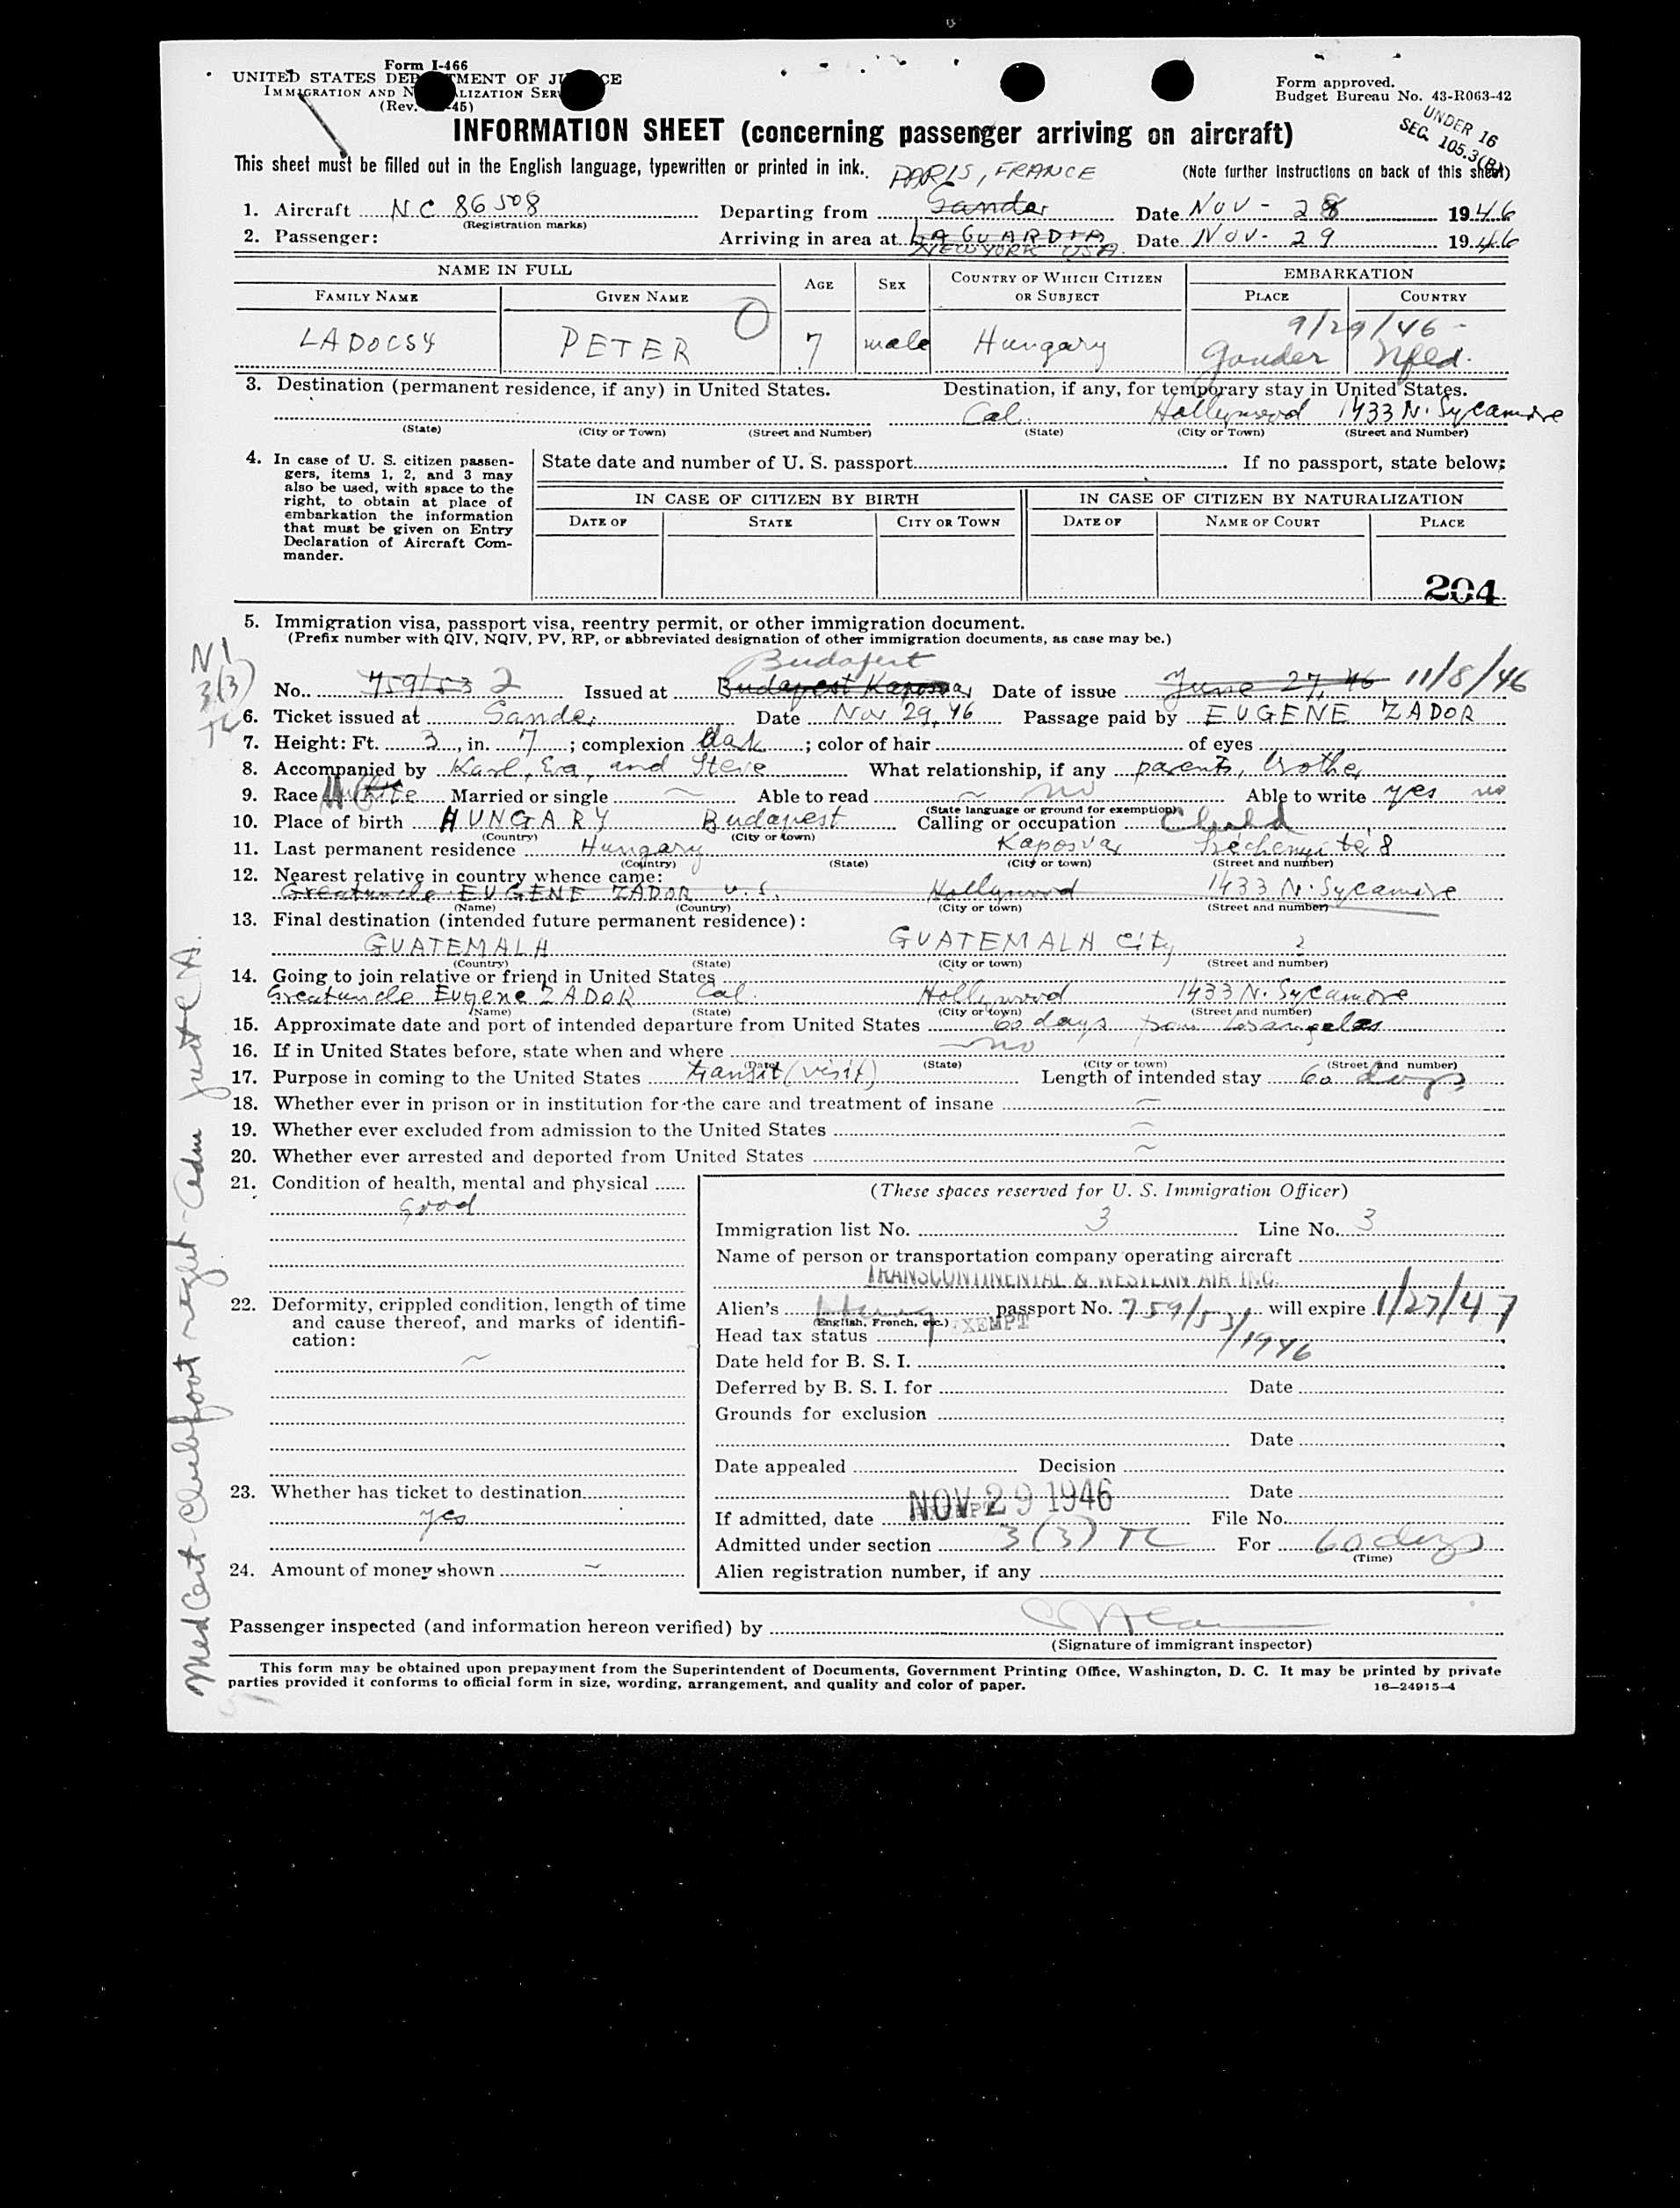 Form I-466
UNITED STATES DEP TMENT OF J CE
IMMIGRATION AND N LIZATION SER
(Rev. -45)
Form approved.
Budget Bureau No. 43-R063-42
UNDER 16
SEC. 105.3(B)
INFORMATION SHEET (concerning passenger arriving on aircraft)
This sheet must be filled out in the English language, typewritten or printed in ink. PARIS, FRANCE (Note further instructions on back of this sheet)
1. Aircraft NC 86508 Departing from Gander Date Nov - 28 1946
(Registration marks)
2. Passenger: Arriving in area at LA GUARDIA Date Nov - 29 1946
NEW YORK USA.
NAME IN FULL AGE SEX COUNTRY OF WHICH CITIZEN OR SUBJECT EMBARKATION
FAMILY NAME GIVEN NAME PLACE COUNTRY
9/29/46 -
LADOCSY PETER O 7 male Hungary Gander Nfld.
3. Destination (permanent residence, if any) in United States. Destination, if any, for temporary stay in United States.
Cal. Hollywood 1433 N. Sycamore
(State) (City or Town) (Street and Number) (State) (City or Town) (Street and Number)
4. In case of U. S. citizen passen-
gers, items 1, 2, and 3 may
also be used, with space to the
right, to obtain at place of
embarkation the information
that must be given on Entry
Declaration of Aircraft Com-
mander.
State date and number of U. S. passport If no passport, state below:
IN CASE OF CITIZEN BY BIRTH IN CASE OF CITIZEN BY NATURALIZATION
DATE OF STATE CITY OR TOWN DATE OF NAME OF COURT PLACE
204
5. Immigration visa, passport visa, reentry permit, or other immigration document.
(Prefix number with QIV, NQIV, PV, RP, or abbreviated designation of other immigration documents, as case may be.)
N1
3(3)
TC
Budapest
No. 759/53 2 Issued at Budapest Kaposvar Date of issue June 27, 46 11/8/46
6. Ticket issued at Gander Date Nov 29, 46 Passage paid by EUGENE ZADOR
7. Height: Ft. 3, in. 7; complexion dark; color of hair of eyes
8. Accompanied by Karl, Eva, and Steve What relationship, if any parents, brother
9. Race White Married or single ~ Able to read ~ no Able to write yes no
(State language or ground for exemption)
10. Place of birth HUNGARY Budapest Calling or occupation Child
(Country) (City or town)
11. Last permanent residence Hungary Kaposvar Szechenyi tér 8
(Country) (State) (City or town) (Street and number)
12. Nearest relative in country whence came:
Greatuncle EUGENE ZADOR U.S. Hollywood 1433 N. Sycamore
(Name) (Country) (City or town) (Street and number)
13. Final destination (intended future permanent residence):
GUATEMALA GUATEMALA City ?
(Country) (State) (City or town) (Street and number)
14. Going to join relative or friend in United States
Greatuncle Eugene ZADOR Cal. Hollywood 1433 N. Sycamore
(Name) (State) (City or town) (Street and number)
15. Approximate date and port of intended departure from United States 60 days from Los angeles
16. If in United States before, state when and where ~ no
(Date) (State) (City or town) (Street and number)
17. Purpose in coming to the United States transit (visit) Length of intended stay 60 days
18. Whether ever in prison or in institution for the care and treatment of insane ~
19. Whether ever excluded from admission to the United States ~
20. Whether ever arrested and deported from United States ~
21. Condition of health, mental and physical
Good
22. Deformity, crippled condition, length of time
and cause thereof, and marks of identifi-
cation:
~
23. Whether has ticket to destination
yes
24. Amount of money shown ~
(These spaces reserved for U. S. Immigration Officer)
Immigration list No. 3 Line No. 3
Name of person or transportation company operating aircraft
TRANSCONTINENTAL & WESTERN AIR INC.
Alien's passport No. 759/53/1946 will expire 1/27/47
(English, French, etc.)
Head tax status EXEMPT
Date held for B. S. I.
Deferred by B. S. I. for Date
Grounds for exclusion
Date
Date appealed Decision
Date
If admitted, date NOV 29 1946 File No.
Admitted under section 3(3) TC For 60 days
(Time)
Alien registration number, if any
Passenger inspected (and information hereon verified) by
(Signature of immigrant inspector)
This form may be obtained upon prepayment from the Superintendent of Documents, Government Printing Office, Washington, D. C. It may be printed by private
parties provided it conforms to official form in size, wording, arrangement, and quality and color of paper.
16—24915-4
Med Cert - Clubfoot right - Adm